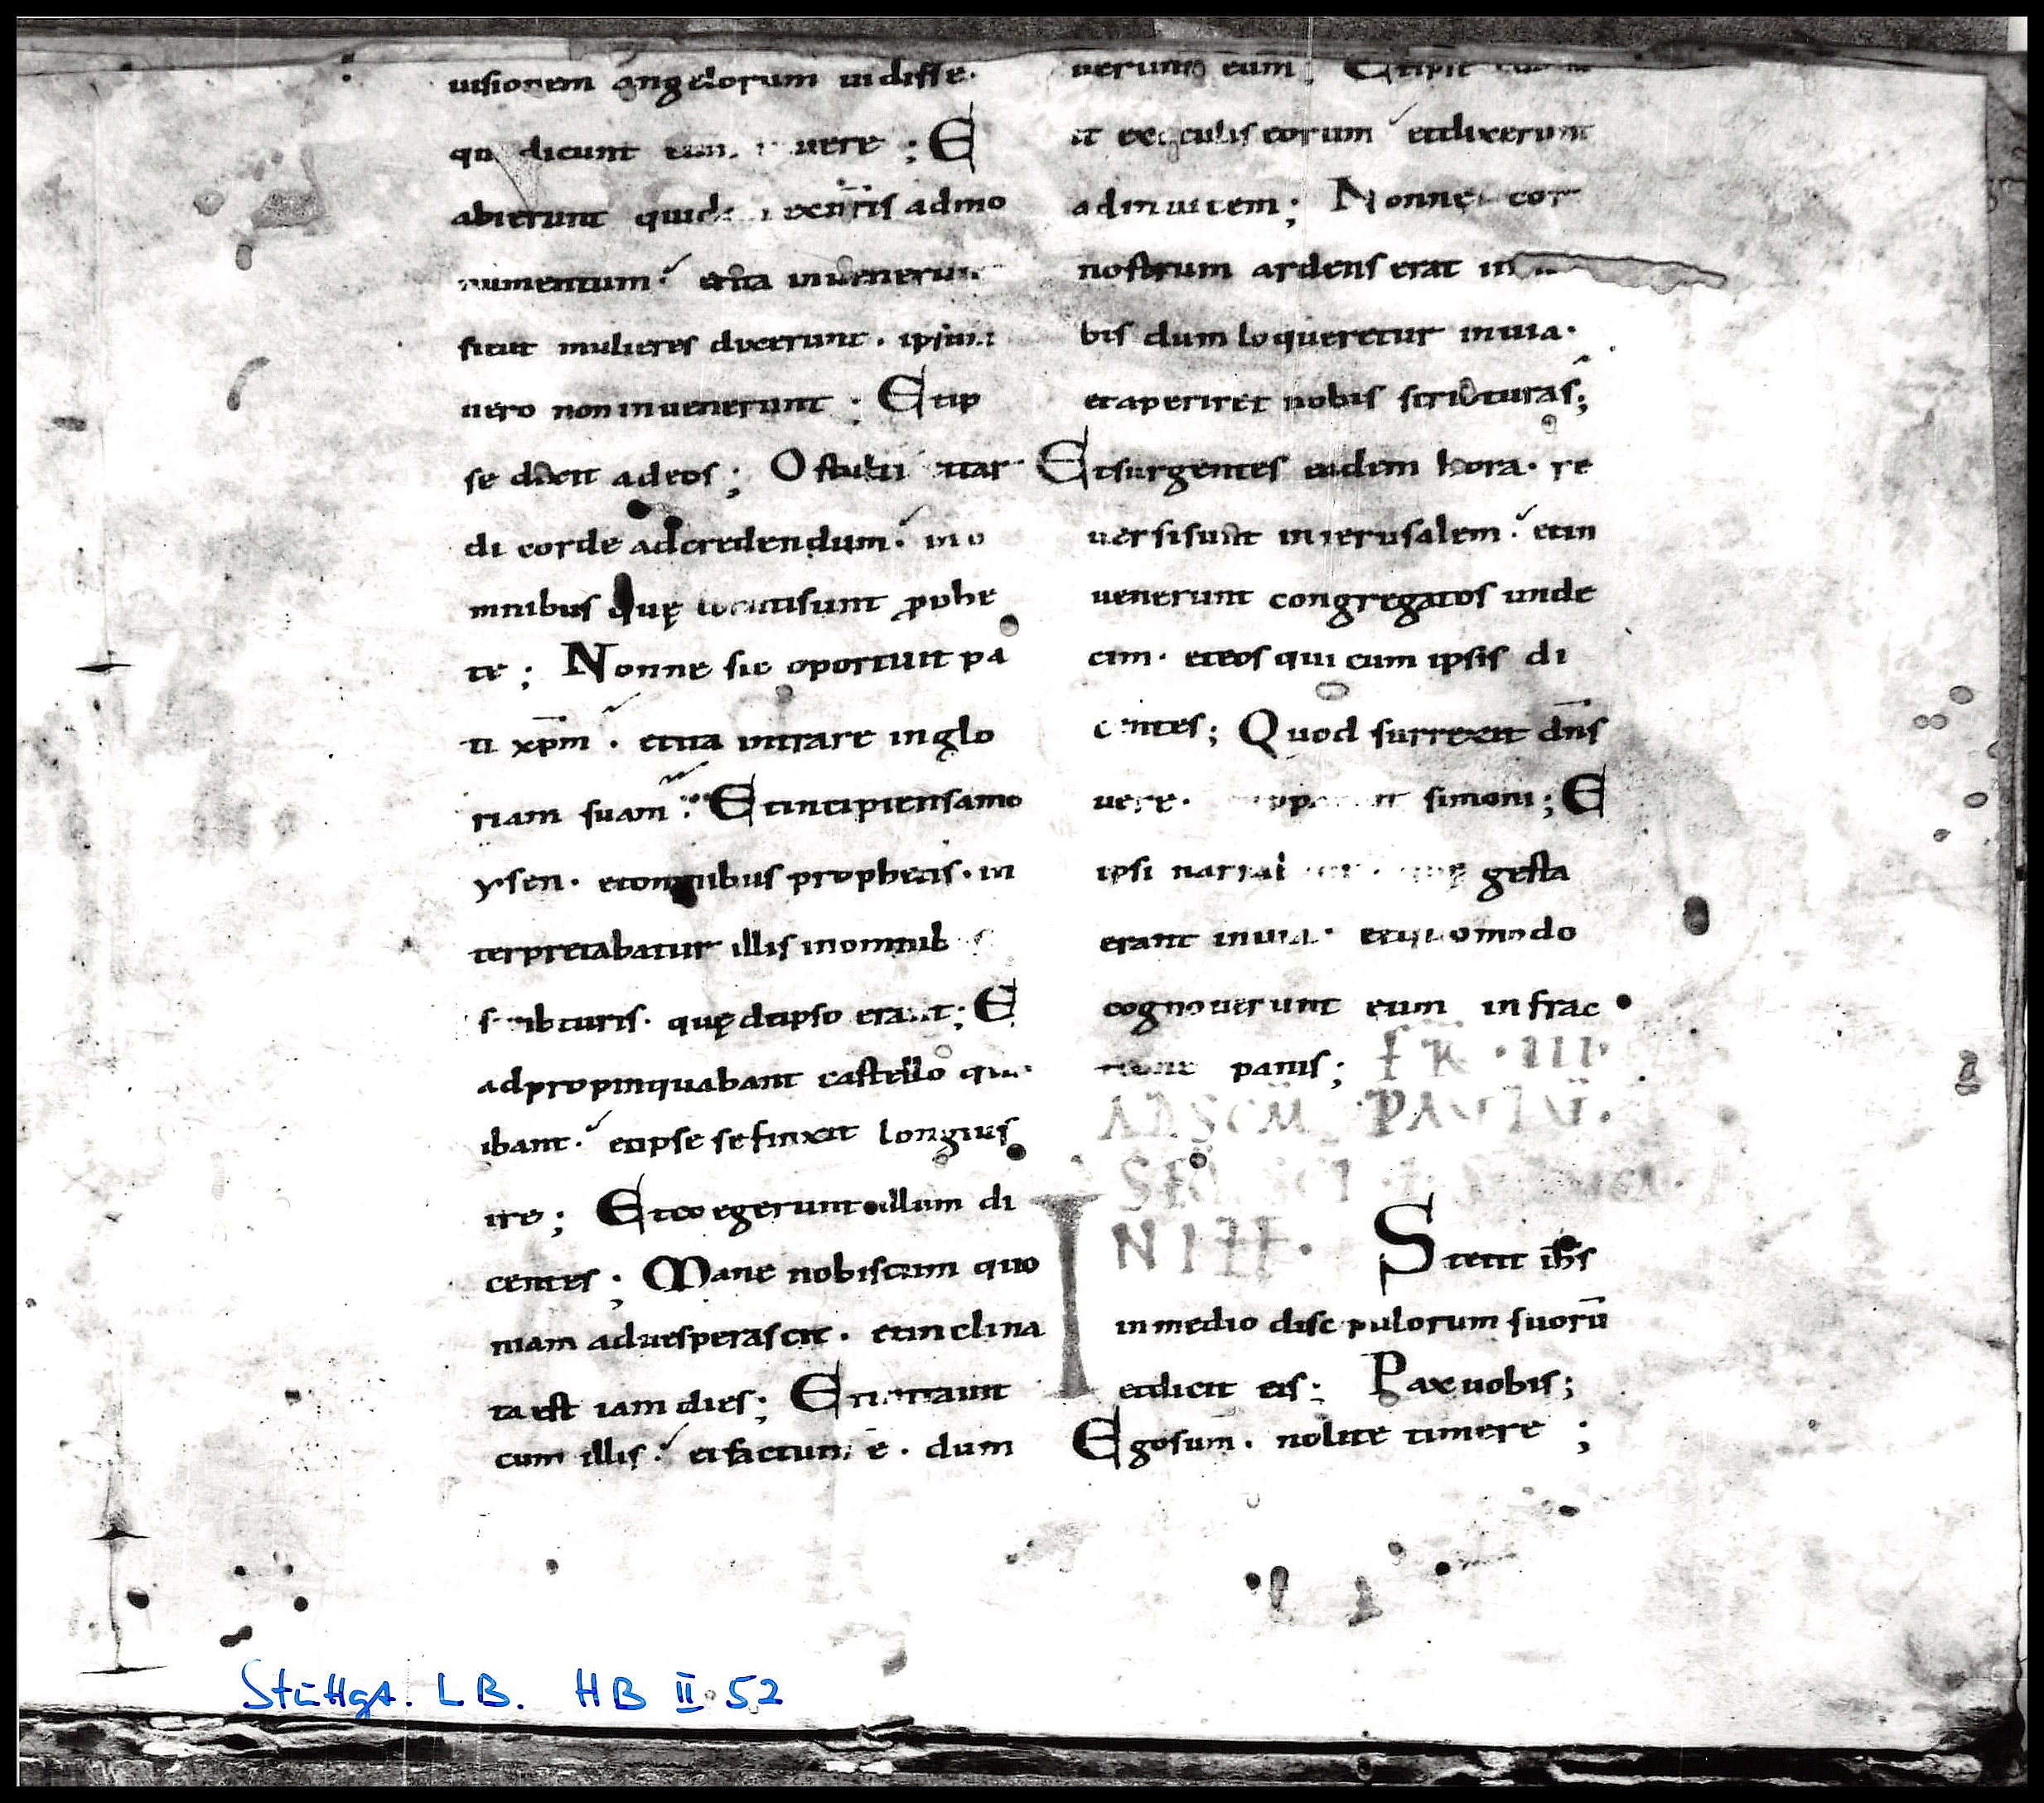 uisionem angelorum uidisse.
qui dicunt eum uiuere; E
abierunt quidam ex nr̄is ad mo
numentum. et ita inuenerunt
sicut mulieres dixerunt. ipsum
uero non inuenerunt. Et ip
se dixit ad eos; O stulti et tar
di corde ad credendum. in o
mnibus quę locuti sunt ꝓphe
te; Nonne sic oportuit pa
ti xp̄m. et ita intrare in glo
riam suam. Et incipiens a mo
ysen. et omnibus prophetis. in
terpretabatur illis in omnib
scribturis. quę de ipso erant; E
adpropinquabant castello quo
ibant. et ipse se finxit longius
ire; Et coegerunt illum di
centes; Mane nobiscum quo
niam aduesperascit. et inclina
ta est iam dies; Et intrauit
cum illis. et factum ē. dum
uerunt eum; Et ipse
it ex oculis eorum et dixerunt
ad inuicem; Nonne cor
nostrum ardens erat in
bis dum loqueretur in uia.
et aperiret nobis scribturas;
Et surgentes eadem hora. re
uersi sunt in ierusalem. et in
uenerunt congregatos unde
cim. et eos qui cum ipsis di
centes; Quod surrexit dn̄s
uere. apparuit simoni; E
ipsi narrabant quę gesta
erant in uia. et quomodo
cognouerunt eum in frac
tione panis; FR̄. III.
AD SCM̄ PAULŪ.
INILL. Stetit ih̄s
in medio discipulorum suorū
et dicit eis; Pax uobis;
Ego sum. nolite timere;
Stuttgt. LB. HB II 52